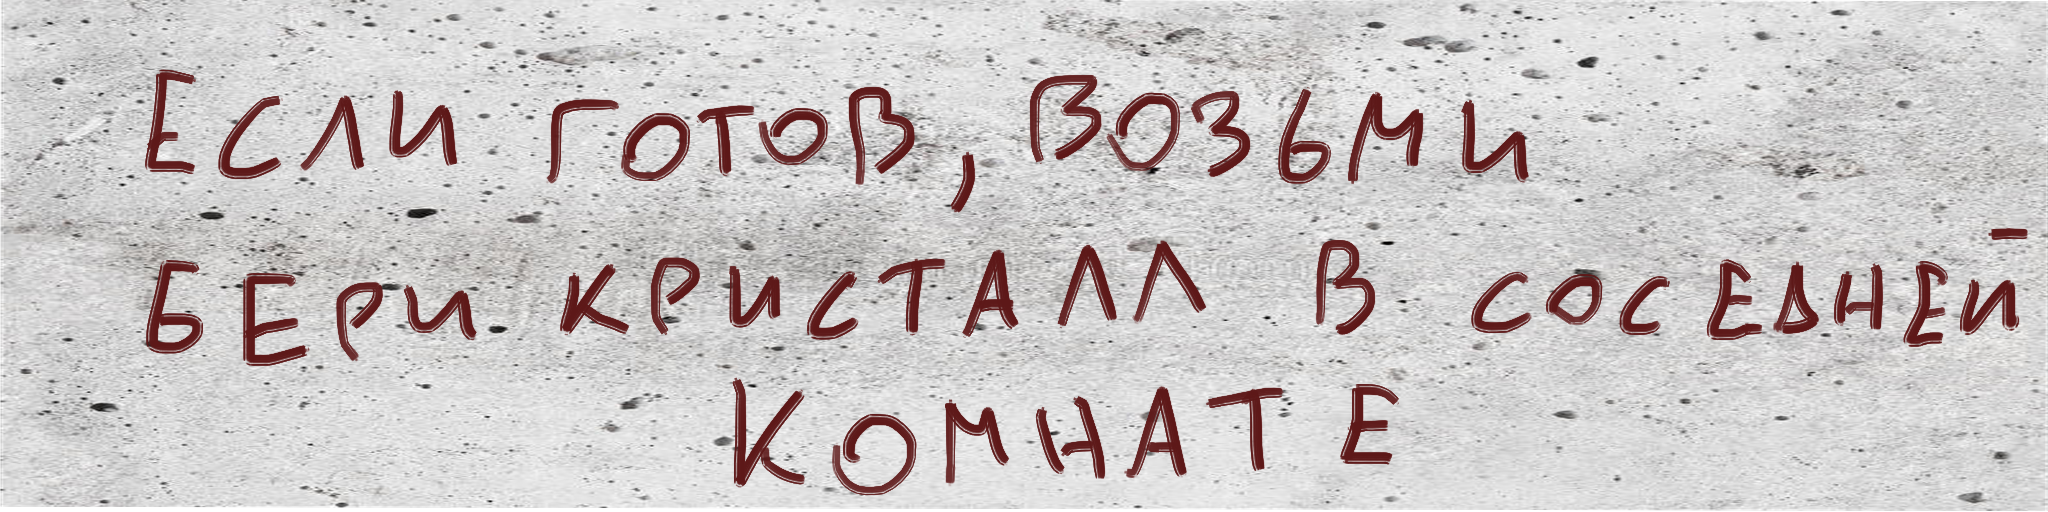 Если готов, возьми
бери кристалл в соседней
комнате